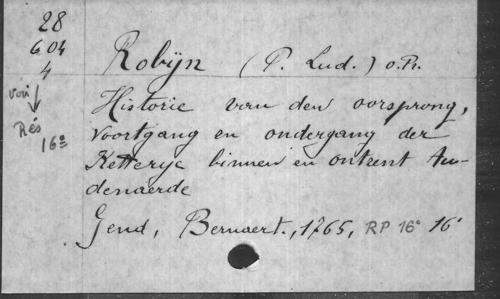 28
604
4
voir
Rés
16º
Robijn (P. Lud.) o. Pr.
Historie van den oorsprong,
voortgang en ondergang der
Ketterye binnen en ontrent Au-
denaerde
Gend, Bernaert., 1765, RP 16º 16º